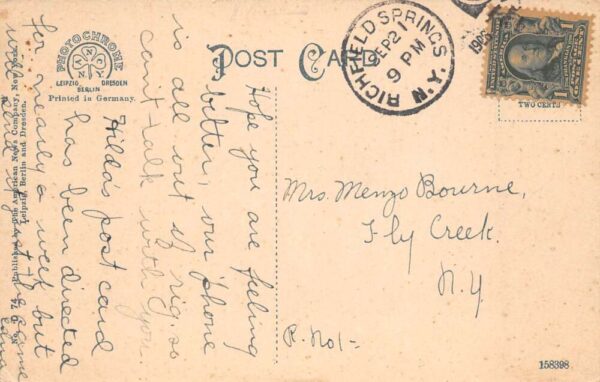 PHOTOCHROME
ANCO
N.Y.
LEIPZIG DRESDEN
BERLIN
Printed in Germany.
POST CARD
RICHFIELD SPRINGS
SEP 2
9 PM
N.Y.
1908
1
TWO CENTS
Hope you are feeling
better, our 'phone
is all out of rig, so
can't talk with you.
Hilda's post card
has been directed
for nearly a week but
will send
Edna
Mrs. Menzo Bourne,
Fly Creek.
N.Y
R. No 1-
74 Published by The American News Company, New York,
Leipzig, Berlin and Dresden.
158398